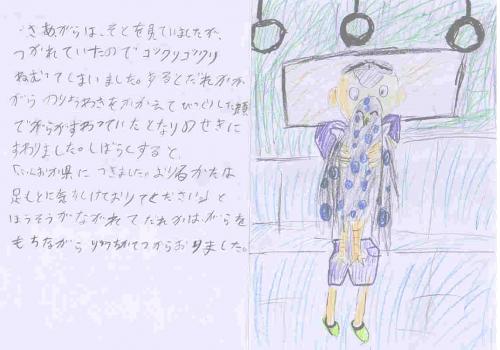 さあがらは、そとを見ていましたが、
つかれていたのでコックリコックリ
ねむってしまいました。するとだれかが
がら のりちわきをかかえて びっくりした顔
でがらがすわっていたとなりのせきに
すわりました。しばらくすると、
おか県に つきました。おり るかたは
足もとに気をつけており てください」と
ほうそうがながれてだれかは、がらを
もちながら おりました。